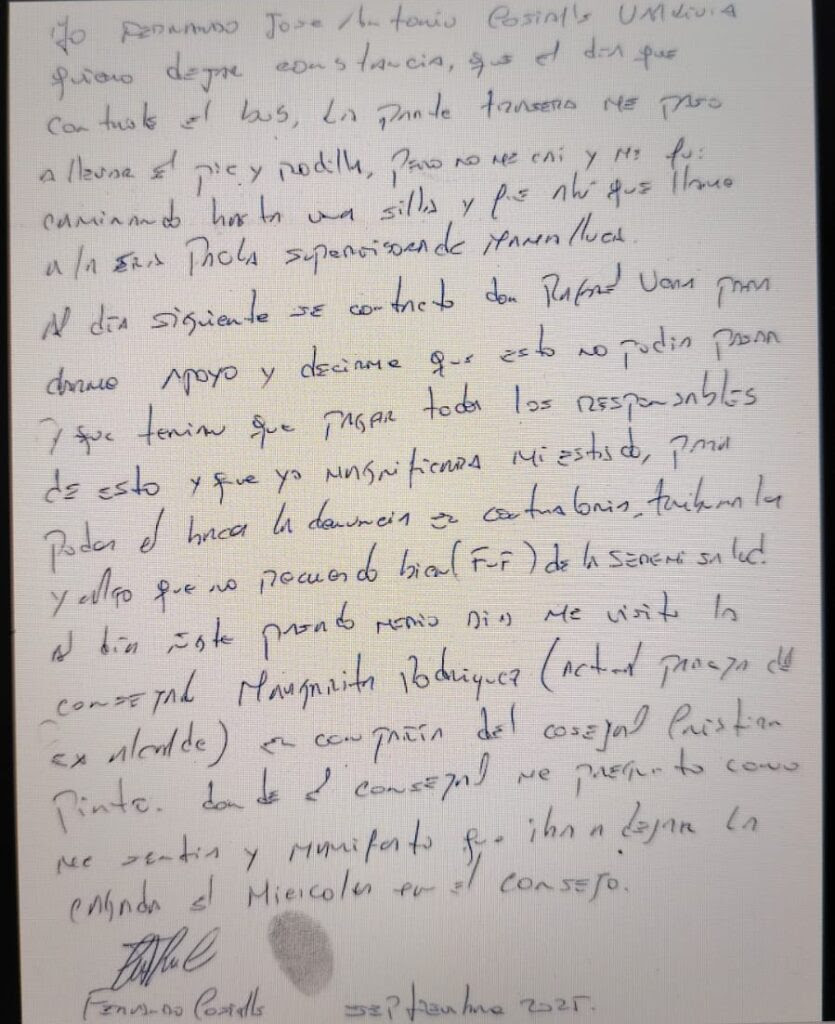 Yo FERNANDO Jose Antonio
quiero dejar constancia, que el dia que
el bus, La parte trasera me paso
a llevar el pie y rodilla, pero no me cai y me fui
caminando hasta una silla y fue ahi que llame
a la SRA PAOLA supervisora de
Al dia siguiente se contacto don Rafael Vera para
darme APOYO y decirme que esto no podia pasar
y que tenian que PAGAR todos los RESPONSABLES
de esto y que yo MAGNIFICARA mi estado, para
Poder el hacer la denuncia en contraloria, tribunales
y algo que no recuerdo bien (F-F) de la SEREMI salud.
Al dia medio dia me visito la
consejal Margarita Rodriguez (Actual pareja de
ex alcalde) en compañia del cosejal Cristian
Pinto. donde el consejal me pregunto como
me sentia y manifesto que iba a dejar la
cagada el Miercoles en el consejo.
Fernando
septiembre 2025.